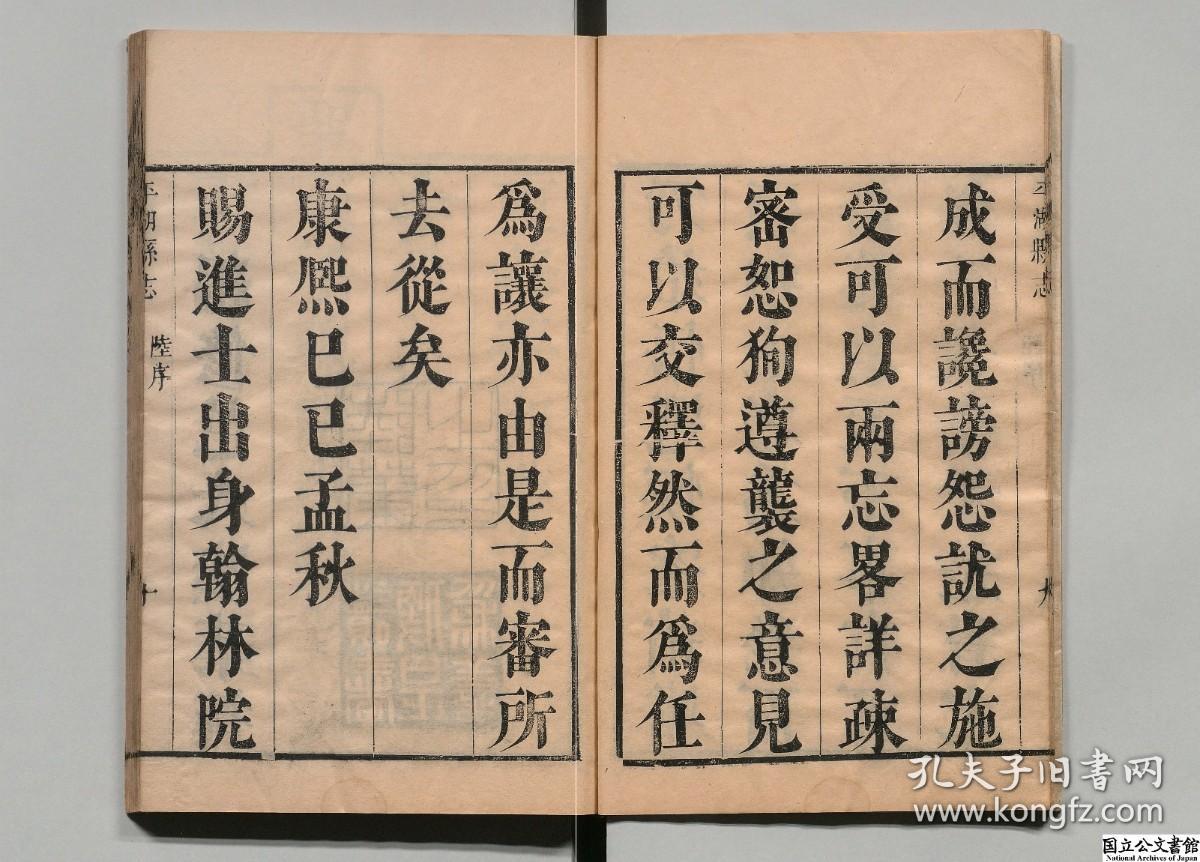 平湖縣志
九
成而讒謗怨訧之施
受可以兩忘畧詳疎
密恕狥遵襲之意見
可以交釋然而爲任
爲讓亦由是而審所
去從矣
康熈己巳孟秋
賜進士出身翰林院
平湖縣志 陸序 十
孔夫子旧书网
www.kongfz.com
国立公文書館
National Archives of Japan